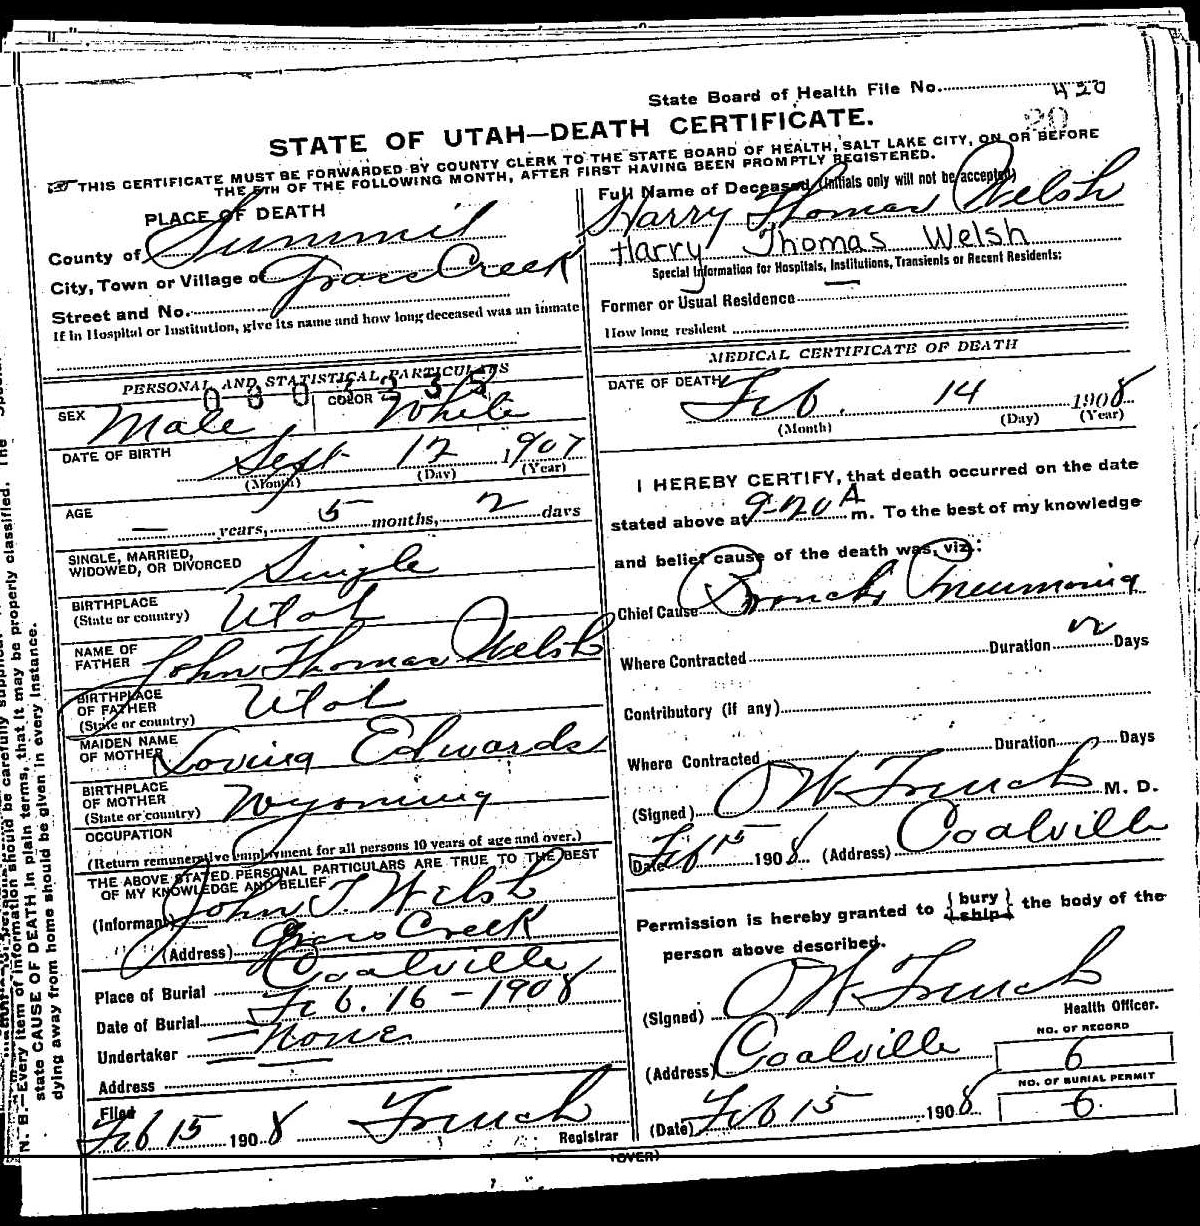 State Board of Health File No. 420
20
STATE OF UTAH—DEATH CERTIFICATE.
THIS CERTIFICATE MUST BE FORWARDED BY COUNTY CLERK TO THE STATE BOARD OF HEALTH, SALT LAKE CITY, ON OR BEFORE
THE 5TH OF THE FOLLOWING MONTH, AFTER FIRST HAVING BEEN PROMPTLY REGISTERED.
PLACE OF DEATH
County of Summit
City, Town or Village of Grass Creek
Street and No.
If in Hospital or Institution, give its name and how long deceased was an inmate
PERSONAL AND STATISTICAL PARTICULARS
SEX Male COLOR White
DATE OF BIRTH Sept 12 1907
(Month) (Day) (Year)
AGE — years, 5 months, 2 days
SINGLE, MARRIED,
WIDOWED, OR DIVORCED Single
BIRTHPLACE
(State or country) Utah
NAME OF
FATHER John Thomas Welsh
BIRTHPLACE
OF FATHER
(State or country) Utah
MAIDEN NAME
OF MOTHER Lovina Edwards
BIRTHPLACE
OF MOTHER
(State or country) Wyoming
OCCUPATION
(Return remunerative employment for all persons 10 years of age and over.)
THE ABOVE STATED PERSONAL PARTICULARS ARE TRUE TO THE BEST
OF MY KNOWLEDGE AND BELIEF
(Informant) John T. Welsh
(Address) Grass Creek
Place of Burial Coalville
Date of Burial Feb. 16 - 1908
Undertaker None
Address
Filed
Feb 15 1908 French Registrar
Full Name of Deceased (Initials only will not be accepted)
Harry Thomas Welsh
Harry Thomas Welsh
Special Information for Hospitals, Institutions, Transients or Recent Residents:
Former or Usual Residence
How long resident
MEDICAL CERTIFICATE OF DEATH
DATE OF DEATH Feb. 14 1908
(Month) (Day) (Year)
I HEREBY CERTIFY, that death occurred on the date
stated above at 9-20 A m. To the best of my knowledge
and belief cause of the death was, viz.:
Chief Cause Broncho Pneumonia
Where Contracted Duration Days
Contributory (if any)
Where Contracted Duration Days
(Signed) O W French M. D.
Date Feb 15 1908 (Address) Coalville
Permission is hereby granted to { bury / ship } the body of the
person above described.
(Signed) O W French
Health Officer.
(Address) Coalville
NO. OF RECORD
6
NO. OF BURIAL PERMIT
6
(Date) Feb 15 1908
(OVER)
N. B.—Every item of information should be carefully supplied.
state CAUSE OF DEATH in plain terms, that it may be properly classified. The
dying away from home should be given in every instance.